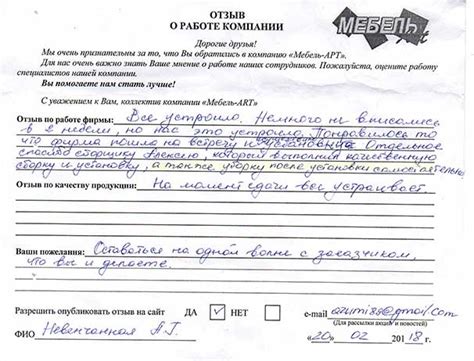 ОТЗЫВ
О РАБОТЕ КОМПАНИИ
МЕБЕЛЬ
Art
Дорогие друзья!
Мы очень признательны за то, что Вы обратились в компанию «Мебель-АРТ».
Для нас очень важно знать Ваше мнение о работе наших сотрудников. Пожалуйста, оцените работу
специалистов нашей компании.
Вы помогаете нам стать лучше!
С уважением к Вам, коллектив компании «Мебель-ART»
Отзыв по работе фирмы: Все устроило. Немного не вписались
в 2 недели, но нас это устроило. Понравилось то
что фирма пошла на встречу и установила. Отдельное
спасибо сборщику Алексею, который выполнил качественную
сборку и установку, а также уборку после установки самостоятельно
Отзыв по качеству продукции: На момент сдачи все устраивает.
Ваши пожелания: Оставаться на одной волне с заказчиком,
что вы и делаете.
Разрешить опубликовать отзыв на сайт ДА ✓ НЕТ e-mail @gmail.com
(Для рассылки акций и новостей)
ФИО Невенчанная А.Г. «20» 02 2018 г.